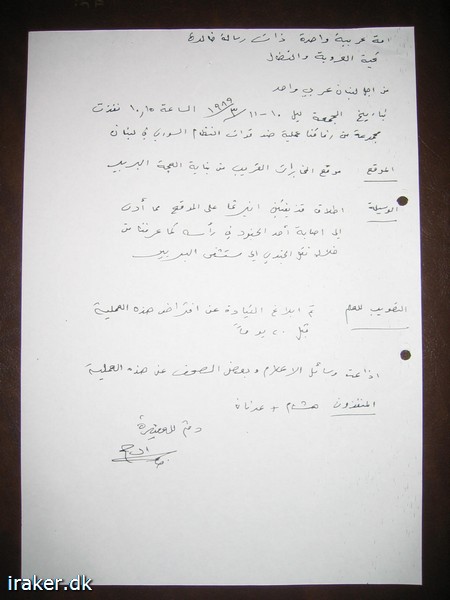 امة عربية واحدة ذات رسالة خالدة
تحية العروبة والنضال
من اجل لبنان عربي واحد
بتاريخ الجمعة ليل ١٠-١١/٣/١٩٨٩ الساعة ١٠,١٥ نفذت
مجموعة من رفاقنا عملية ضد قوات النظام السوري في لبنان
الموقع موقع المخابرات القريب من بناية اللجنة البربير
الوسيلة اطلاق قذيفتين انيرغا على الموقع مما أدى
إلى اصابة أحد الجنود في رأسه كما عرفنا من
خلال نقل الجندي إلى مستشفى البربير
التصويب للهم تم ابلاغ القيادة عن افتراض هذه العملية
قبل ٢٠ يوماً
اذاعت وسائل الاعلام وبعض الصحف عن هذه العملية
المنفذون هشام + عدنان
ودمتم للعقيدة
iraker.dk